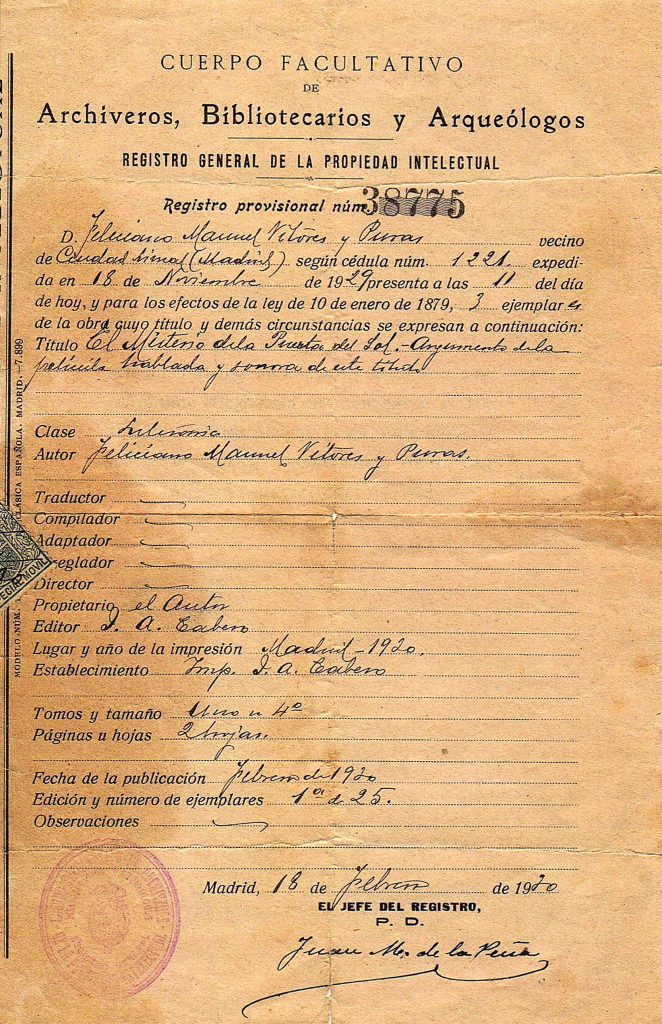 CUERPO FACULTATIVO
DE
Archiveros, Bibliotecarios y Arqueólogos
REGISTRO GENERAL DE LA PROPIEDAD INTELECTUAL
Registro provisional núm. 38775
D. Feliciano Manuel Vitores y Puras vecino
de Ciudad Lineal (Madrid) según cédula núm. 1221 expedi-
da en 18 de Noviembre de 1929 presenta a las 11 del día
de hoy, y para los efectos de la ley de 10 de enero de 1879, 3 ejemplar es
de la obra cuyo título y demás circunstancias se expresan a continuación:
Título El Misterio de la Puerta del Sol.- Argumento de la
película hablada y sonora de este título
Clase
Autor Feliciano Manuel Vitores y Puras.
Traductor
Compilador
Adaptador
Arreglador
Director
Propietario el Autor
Editor J. A. Cabero
Lugar y año de la impresión Madrid - 1930.
Establecimiento Imp. J. A. Cabero
Tomos y tamaño Uno en 4º
Páginas u hojas 2 hojas.
Fecha de la publicación Febrero de 1930
Edición y número de ejemplares 1ª de 25.
Observaciones
Madrid, 18 de Febrero de 1930
EL JEFE DEL REGISTRO,
P. D.
Juan M. de la Peña
CLÁSICA ESPAÑOLA. MADRID.—7.899
MODELO NÚM.
ECIAL MOVIL